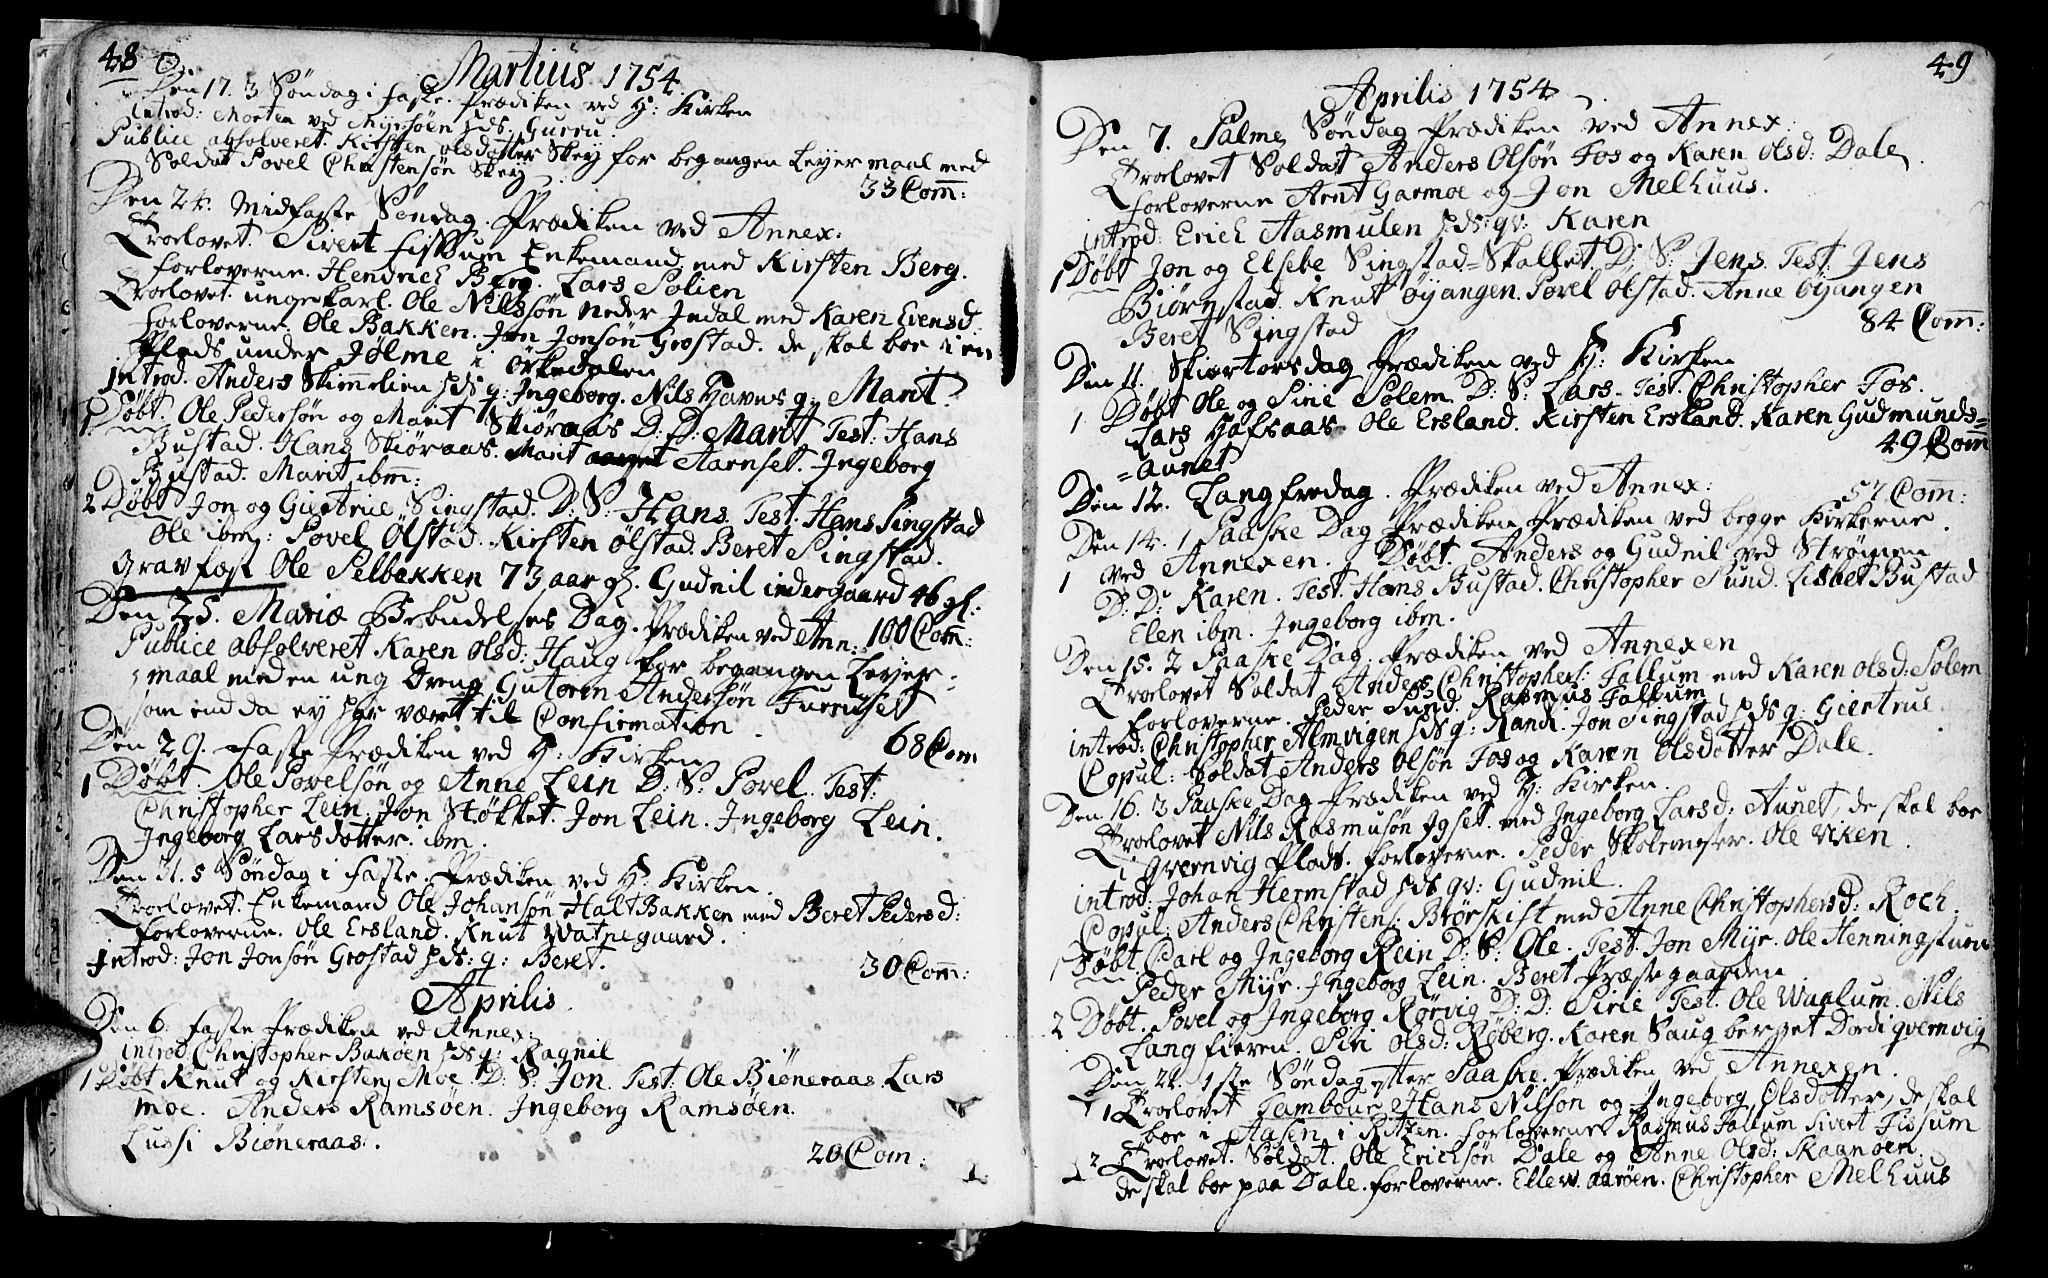 48
Martius 1754
Den 17. 3 Søndag i faste. Prædiken ved H: Kirken
Introd: Morten ved Myrsøen hds: Gurru.
Publice absolveret. Kirsten olsdotter Skey for begangen Leyermaal med
Soldat Povel Christensøn Skey
33 Com:
Den 24. Midfaste Søndag. Prædiken ved Annex:
Troelovet. Sivert fissum Enkemand med Kirsten Berg.
forloverne. Hendrich Berg. Lars Solien
Troelovet unge karl. Ole Nilssøn neder Indal med Karen Evensd:
forloverne. Ole Bakken. Jon Jonsøn Grostad. de skal boe i en
Plads under Jølme i Örkedalen
Introd. Anders Skimelien hds q: Ingeborg. Nils Havens q: Marit.
1 Døbt. Ole Pedersøn og Marit Skiøraas D: D: Marit. Test: Hans
Bustad. Hans Skiøraas. Marit Aarnset. Ingeborg
Bustad. Marit ibm:
2 Døbt Jon og Giertrue Singstad. D: S: Hans. Test. Hans Singstad
Ole ibm: Povel Ölstad. Kirsten Ölstad. Beret Singstad.
Gravfæst Ole Selbekken 73 aar gl. Gudnil indergaard 46 gl:
Den 25. Mariæ Bebudelses Dag. Prædiken ved Ann: 100 Com:
Publice absolveret Karen olsd: Haug for begangen Leyer-
maal med en ung Dreng Gutoren Andersøn Furruset
som endda ey har været til Confirmation
68 Com
Den 29. Faste Prædiken ved H: Kirken
1 Døbt. Ole Povelsøn og Anne Lein D: S: Povel. Test:
Christopher Lein, Jon Støkket. Jon Lein. Ingeborg Lein.
Ingeborg Larsdotter. ibm.
Den 31. 5 Søndag i faste. Prædiken ved H: Kirken.
Troelovet. Enkemand Ole Johansøn HaltBakken med Beret Pedersd:
forloverne. Ole Ersland. Knut Watnegaard.
Introd: Jon Jonsøn Grostad hds: q: Beret.
30 Com:
Aprilis
Den 6. faste Prædiken ved Annex:
introd. Christopher Bakøen hds q: Ragnil
1 Døbt Knut og Kirsten Moe. D: S: Jon. Test. Ole Biøneraas. Lars
moe. Anders Ramsøen. Ingeborg Ramsøen.
Lussi Biøneraas.
20 Com:
49
Aprilis 1754
Den 7. Palme Søndag Prædiken ved Annex:
Troelovet Soldat Anders Olsøn Fos og Karen Olsd: Dale.
forloverne Arnt Garmoe og Jon Melhuus.
introd: Erich Aasmulen hds: qv: Karen
1 Døbt Jon og Elsebe Singstad-Skallet. D: S: Jens. Test. Jens
Biørnstad. Knut Øyangen. Povel Ölstad. Anne Øyangen
Beret Singstad
84 Com:
Den 11. Skiærtorsdag Prædiken ved H: Kirken
1 Døbt Ole og Sirie Solem. D: S: Lars. Test. Christopher Fos.
Lars Hafsaas. Ole Ersland. Kirsten Ersland. Karen Gudmunds-
-aunet
49 Com
Den 12. Langfredag. Prædiken ved Annex:
57 Com:
Den 14. 1 Paaske Dag Prædiken Prædiken ved begge Kirkerne.
1 ved Annexen. Døbt. Anders og Gudnil ved Strømmen
D: D: Karen. Test. Hans Bustad. Christopher Sund. Lisbet Bustad
Elen ibm. Ingeborg ibm.
Den 15. 2 Paaske Dag Prædiken ved Annexen
Troelovet Soldat Anders Christophers: Fallum med Karen Olsd: Solem
forloverne. Peder Sund. Rasmus Fallum
introd: Christopher Almvigen hds q: Randi. Jon Singstad hds q: Giertrue
Copul: Soldat Anders Olsøn Fos og Karen Olsdotter Dale.
Den 16. 3 Paaske Dag Prædiken ved H: Kirken.
Troelovet Nils Rasmusøn Ygset med Ingeborg Larsd: Aunet, de skal boe
i Qvernvig Plads. forloverne. Peder Skolemester. Ole Viken.
introd: Johan Hermstad hds qv: Gudnil.
Copul: Anders Christens: Brørskift med Anne Christophersd: Roch.
1 Døbt. Carl og Ingeborg Rein D: S: Ole. Test. Jon Myr. Ole Henningstuen
Peder Myr. Ingeborg Lein. Beret Præstegaarden
2 Døbt. Povel og Ingeborg Rørvig D: D: Sirie Test. Ole Waalum. Nils
Langfieren. Siri olsd: Røberg. Karen Saugberget Dordi qvernvig
Den 21. 1ste Søndag efter Paaske. Prædiken ved Annexen.
1 Troelovet Tambour Hans Nilsøn og Ingeborg Olsdotter, de skal
boe i Aasen i Ritzen. forloverne Rasmus Fallum Sivert Fissum
2 Troelovet. Soldat. Ole Erichsøn Dale og Anne Olsd: Skaanøen.
de skal boe paa Dale. forloverne. Ellew. aarøen. Christopher Melhuus